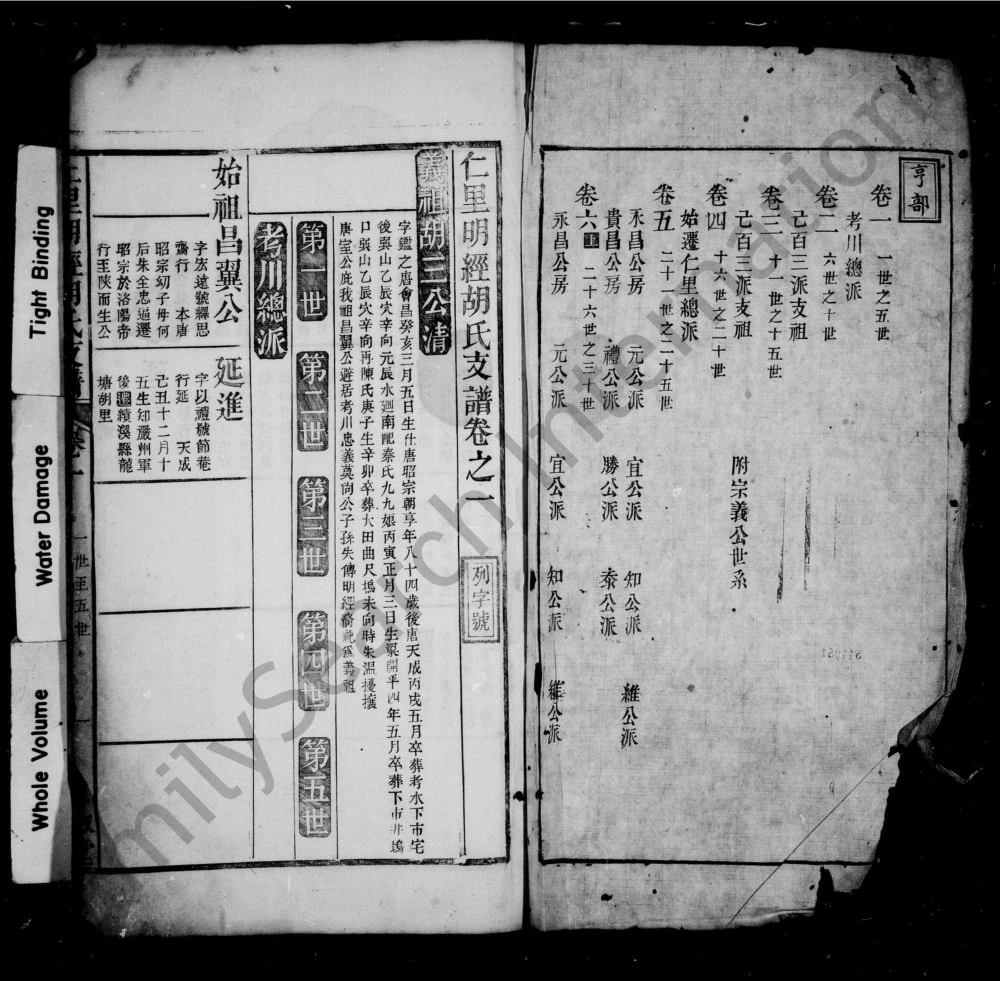 亨部
卷一 一世之五世
考川總派
卷二 六世之十世
己百三派支祖
卷三 十一世之十五世
己百三派支祖
卷四 十六世之二十世 附宗義公世系
始遷仁里總派
卷五 二十一世之二十五世
永昌公房 元公派 宜公派 知公派 維公派
貴昌公房 禮公派 勝公派 泰公派
卷六上 二十六世之三十世
永昌公房 元公派 宜公派 知公派 維公派
仁里明經胡氏支譜卷之一 列字號
義祖胡三公清
字鑑之唐會昌癸亥三月五日生仕唐昭宗朝享年八十四歲後唐天成丙戌五月卒葬考水下市宅
後吳山乙辰穴辛向元辰水廻南配秦氏九九娘丙寅正月三日生梁開平四年五月卒葬下市井塢
口吳山乙辰穴辛向再陳氏庚子生辛卯卒葬大田曲尺塢未向時朱溫擾攘
唐室公庇我祖昌翼公避居考川忠義莫尚公子孫失傳明經裔祀為義祖
第一世 第二世 第三世 第四世 第五世
考川總派
始祖昌翼公
字宏遠號繹思
齋行 本唐
昭宗幼子母何
后朱全忠逼遷
昭宗於洛陽帝
行至陝而生公
延進
字以禮號節菴
行延 天成
己丑十二月十
五生知嚴州軍
後遷績溪縣龍
塘胡里
仁里明經胡氏支譜 卷一 一世至五世
Tight Binding
Water Damage
Whole Volume
FamilySearch International